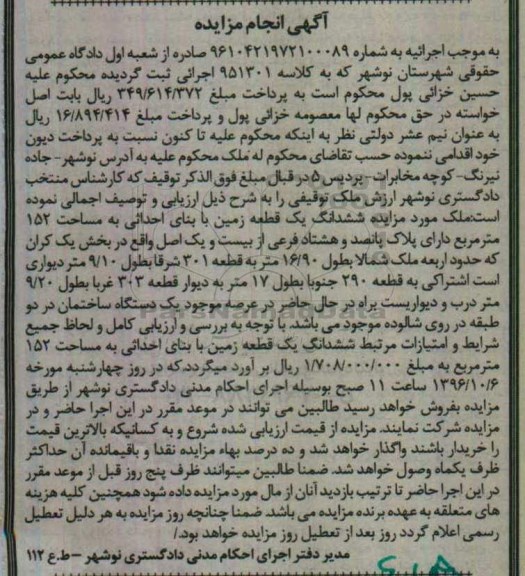 آگهی انجام مزایده
به موجب اجرائیه به شماره ۹۶۱۰۴۲۱۹۷۲۱۰۰۰۸۹ صادره از شعبه اول دادگاه عمومی
حقوقی شهرستان نوشهر که به کلاسه ۹۵۱۳۰۱ اجرائی ثبت گردیده محکوم علیه
حسین خزائی پول محکوم است به پرداخت مبلغ ۳۴۹/۶۱۴/۳۷۲ ریال بابت اصل
خواسته در حق محکوم لها معصومه خزائی پول و پرداخت مبلغ ۱۶/۸۹۴/۴۱۴ ریال
به عنوان نیم عشر دولتی نظر به اینکه محکوم علیه تا کنون نسبت به پرداخت دیون
خود اقدامی ننموده حسب تقاضای محکوم له ملک محکوم علیه به آدرس نوشهر- جاده
نیرنگ- کوچه مخابرات- پردیس ۵ در قبال مبلغ فوق الذکر توقیف که کارشناس منتخب
دادگستری نوشهر ارزش ملک توقیفی را به شرح ذیل ارزیابی و توصیف اجمالی نموده
است:ملک مورد مزایده ششدانگ یک قطعه زمین با بنای احداثی به مساحت ۱۵۲
مترمربع دارای پلاک پانصد و هشتاد فرعی از بیست و یک اصل واقع در بخش یک کران
که حدود اربعه ملک شمالا بطول ۱۶/۹۰ متر به قطعه ۳۰۱ شرقا بطول ۹/۱۰ متر دیواری
است اشتراکی به قطعه ۲۹۰ جنوبا بطول ۱۷ متر به دیوار قطعه ۳۰۳ غربا بطول ۹/۲۰
متر درب و دیواریست براه در حال حاضر در عرصه موجود یک دستگاه ساختمان در دو
طبقه در روی شالوده موجود می باشد. با توجه به بررسی و ارزیابی کامل و لحاظ جمیع
شرایط و امتیازات مرتبط ششدانگ یک قطعه زمین با بنای احداثی به مساحت ۱۵۲
مترمربع به مبلغ ۱/۷۰۸/۰۰۰/۰۰۰ ریال بر آورد میگردد.که در روز چهارشنبه مورخه
۱۳۹۶/۱۰/۶ ساعت ۱۱ صبح بوسیله اجرای احکام مدنی دادگستری نوشهر از طریق
مزایده بفروش خواهد رسید طالبین می توانند در موعد مقرر در این اجرا حاضر و در
مزایده شرکت نمایند. مزایده از قیمت ارزیابی شده شروع و به کسانیکه بالاترین قیمت
را خریدار باشند واگذار خواهد شد و ده درصد بهاء مزایده نقدا و باقیمانده آن حداکثر
ظرف یکماه وصول خواهد شد. ضمنا طالبین میتوانند ظرف پنج روز قبل از موعد مقرر
در این اجرا حاضر تا ترتیب بازدید آنان از مال مورد مزایده داده شود همچنین کلیه هزینه
های متعلقه به عهده برنده مزایده می باشد. ضمنا چنانچه روز مزایده به هر دلیل تعطیل
رسمی اعلام گردد روز بعد از تعطیل روز مزایده خواهد بود./
مدیر دفتر اجرای احکام مدنی دادگستری نوشهر -ط.ع ۱۱۲
ParsNamadData